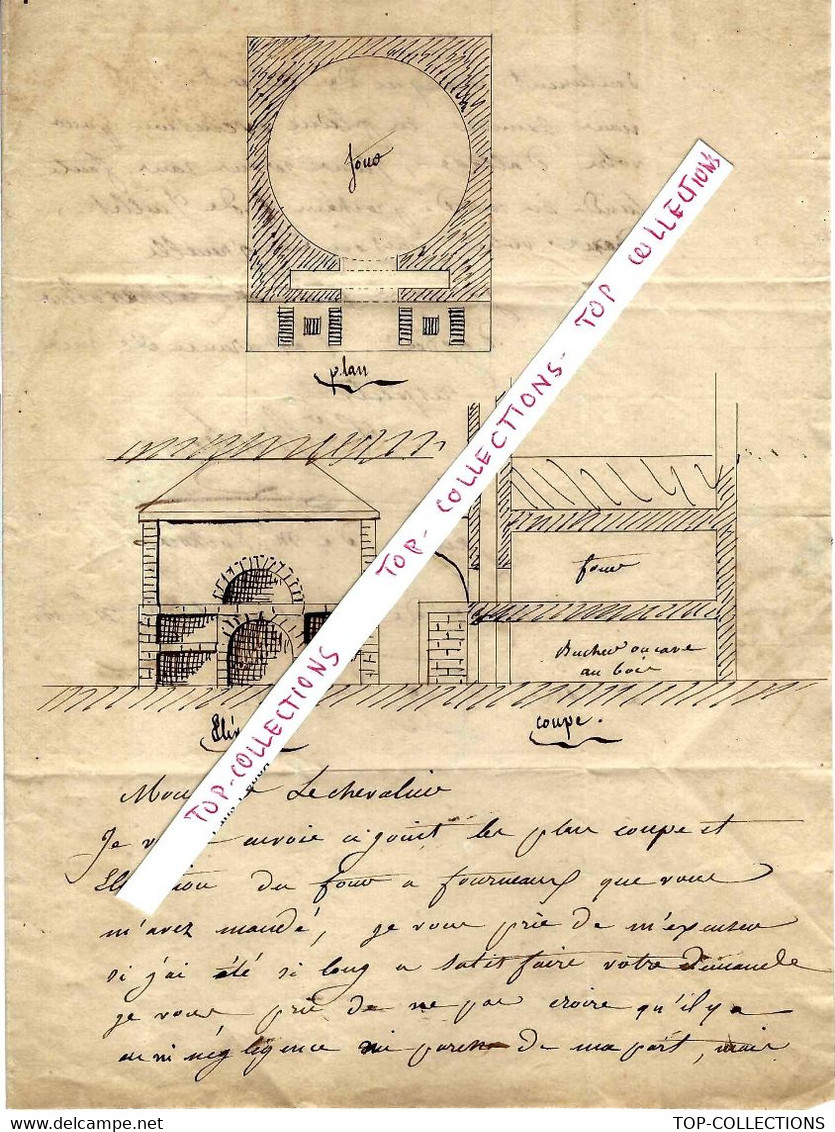 four
TOP-COLLECTIONS TOP- COLLECTIONS- TOP COLLECTIONS
plan
four
Bucher ou cave
au bois
Elév
coupe.
Mon Lechevalier
Je v envoie ci joint les plan coupe et
du four a fourneaux que vous
m'avez mandé, je vous prie de m'excuser
si j'ai été si long a satisfaire votre demande
je vous prie de ne pas croire qu'il y a
eu ni négligence ni de ma part, mais
TOP-COLLECTIONS